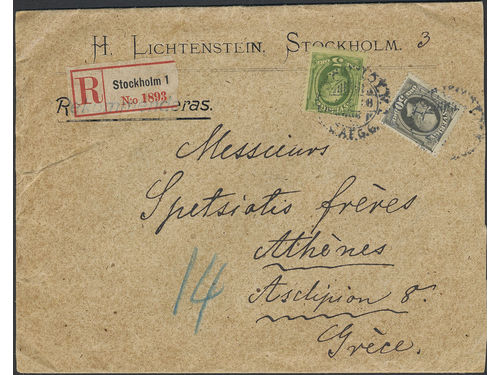 H. LICHTENSTEIN. STOCKHOLM. 3
R Stockholm 1
No 1893
Messieurs
Spetsiotis frères
Athènes
Asclipion 8.
Grèce.
14